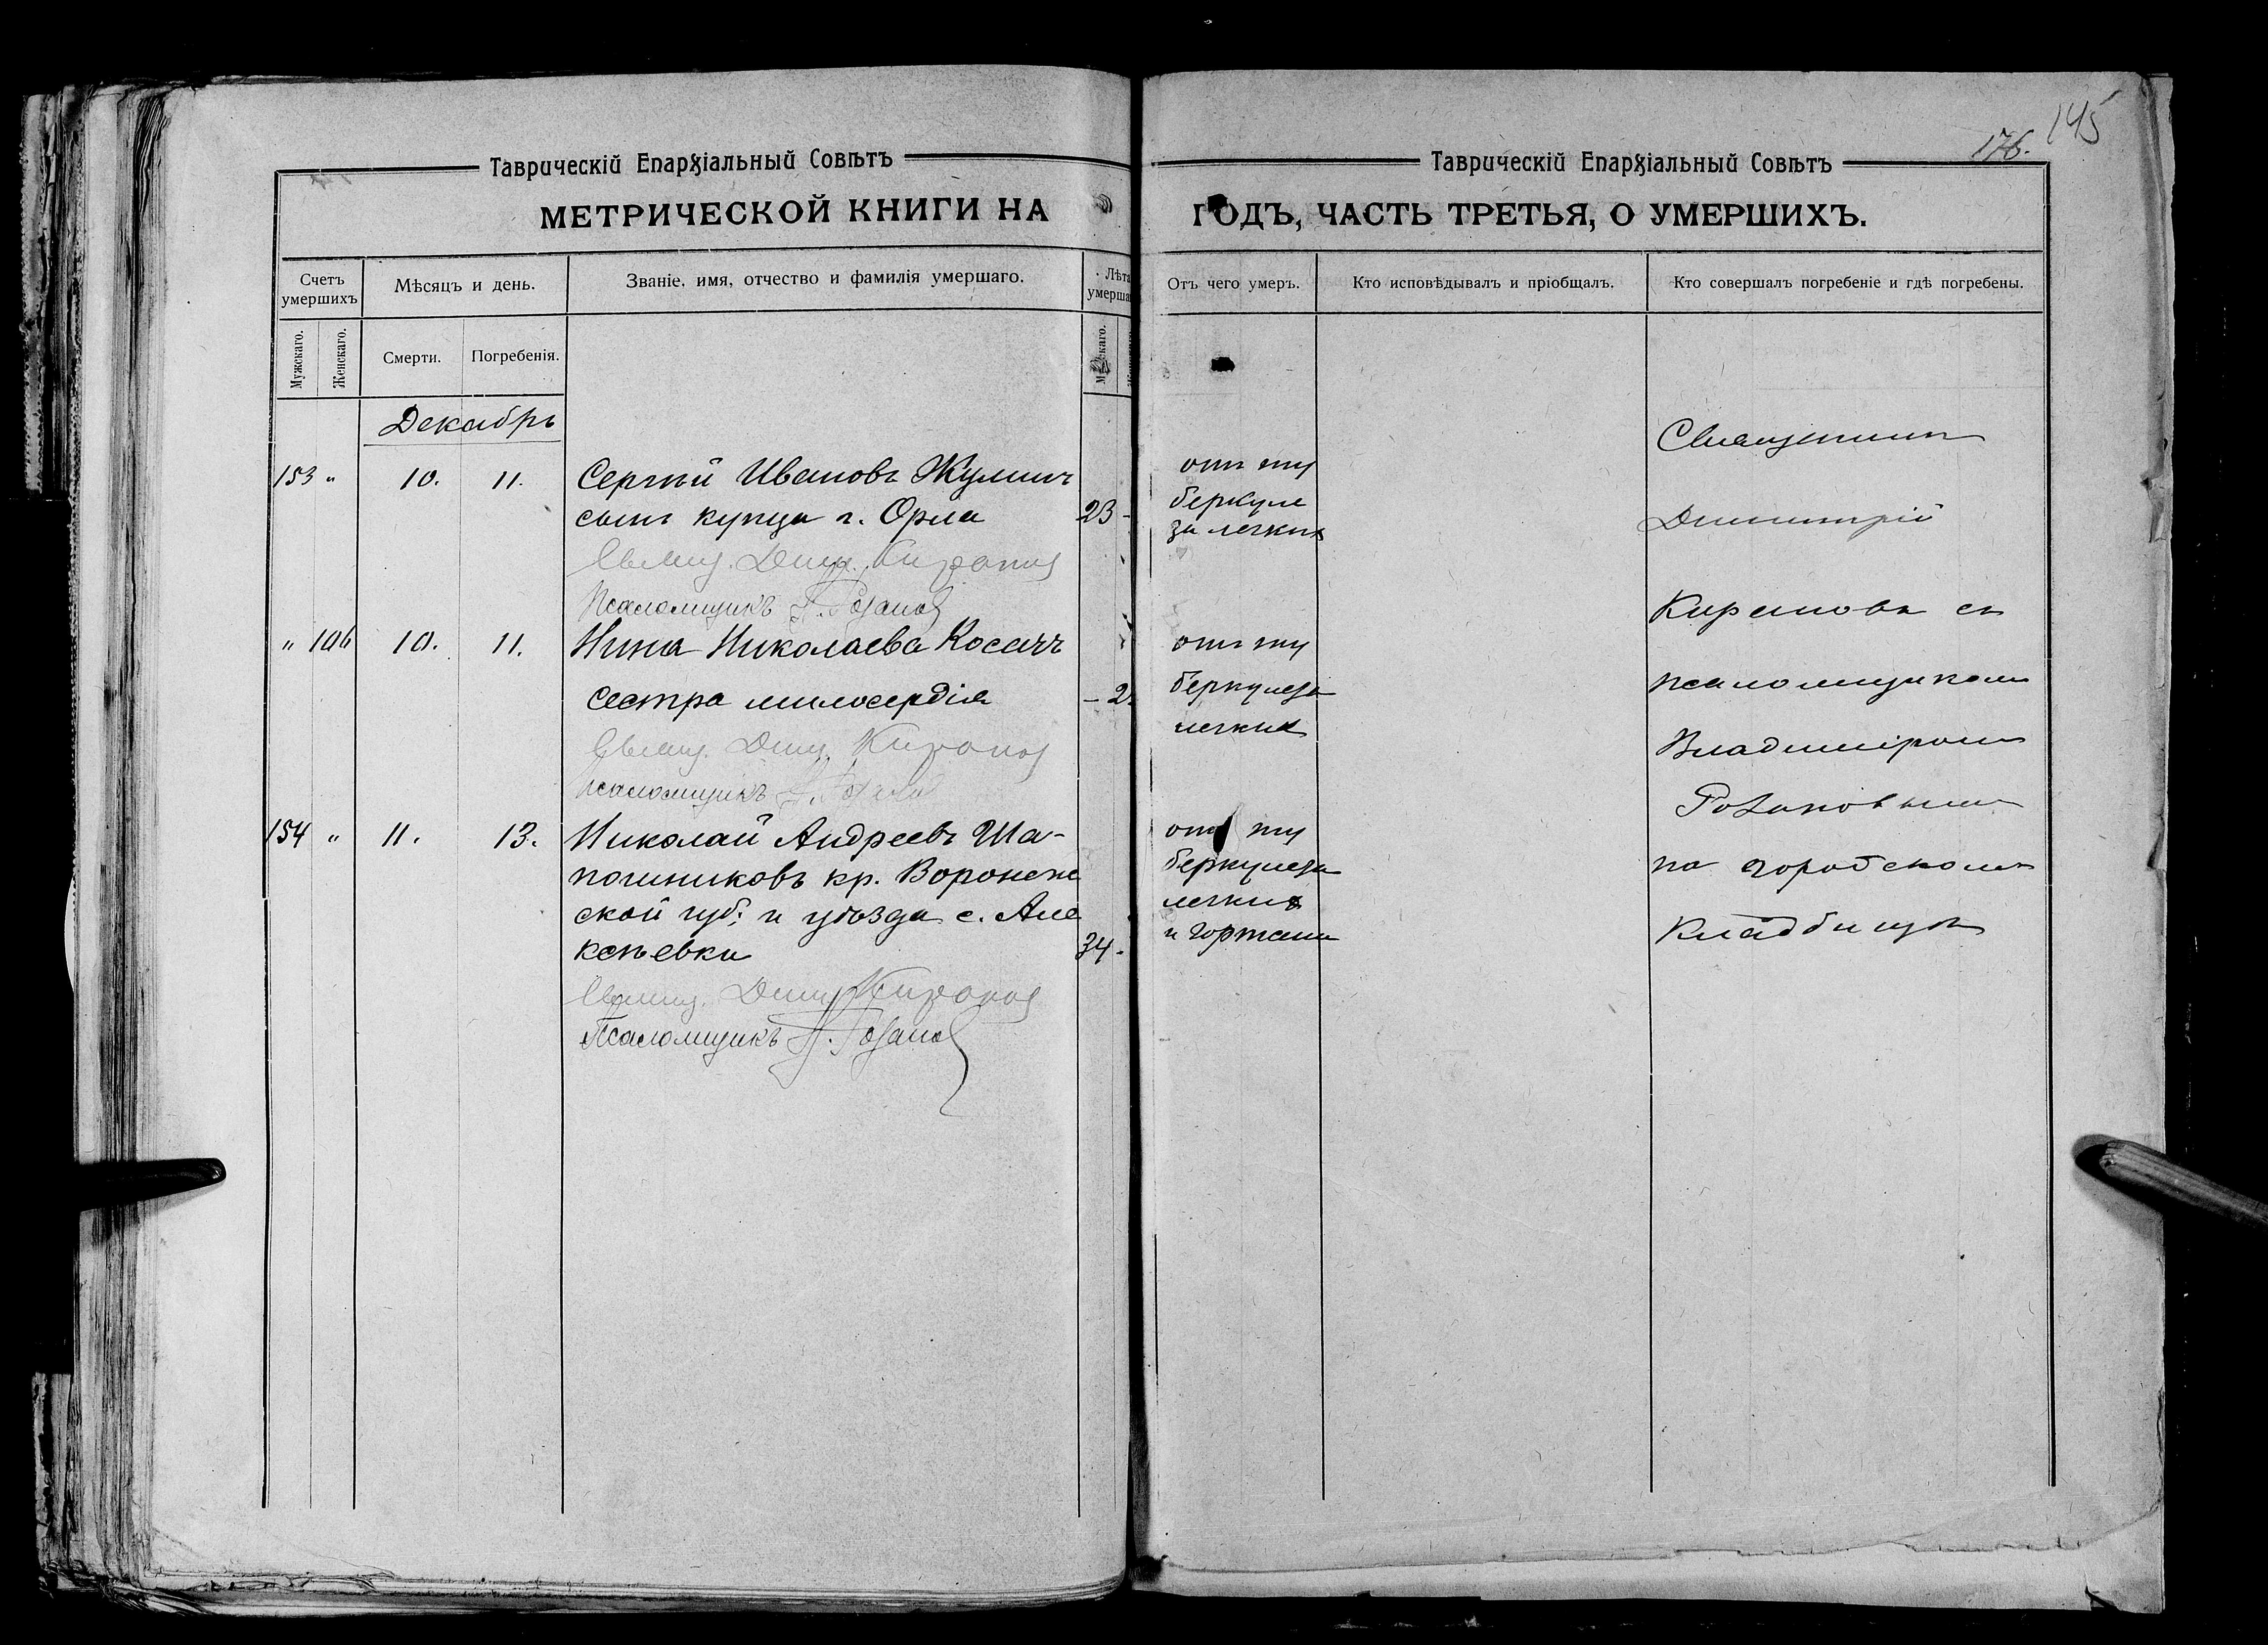 145
176.
Таврическій Епархіальный Совѣтъ
МЕТРИЧЕСКОЙ КНИГИ НА
Счетъ умершихъ
Мѣсяцъ и день.
Званіе, имя, отчество и фамилія умершаго.
Лѣта умерша
Мужскаго.
Женскаго.
Смерти.
Погребенія.
Декабрь
153 " 10. 11. Сергѣй Ивановъ Жулинъ
сынъ купца г. Орла 23 -
Свящ. Дим. Киранов
Псаломщикъ Розанов
" 106 10. 11. Нина Николаева Косачъ
сестра милосердія - 2
Свящ. Дим. Киранов
Псаломщикъ Розанов
154 " 11. 13. Николай Андреевъ Ша-
пошниковъ кр. Воронеж
ской губ. и уѣзда с. Але
ксѣевки 34 -
Свящ. Дим. Киранов
Псаломщикъ Розанов
Таврическій Епархіальный Совѣтъ
ГОДЪ, ЧАСТЬ ТРЕТЬЯ, О УМЕРШИХЪ.
Отъ чего умеръ.
Кто исповѣдывалъ и пріобщалъ.
Кто совершалъ погребеніе и гдѣ погребены.
отъ ту
беркуле
за легких
отъ ту
беркулеза
легких
отъ ту
беркулеза
легких
и гортани
Священникъ
Димитрій
Кирановъ съ
псаломщикомъ
Владиміромъ
Розановымъ
на городскомъ
кладбищѣ